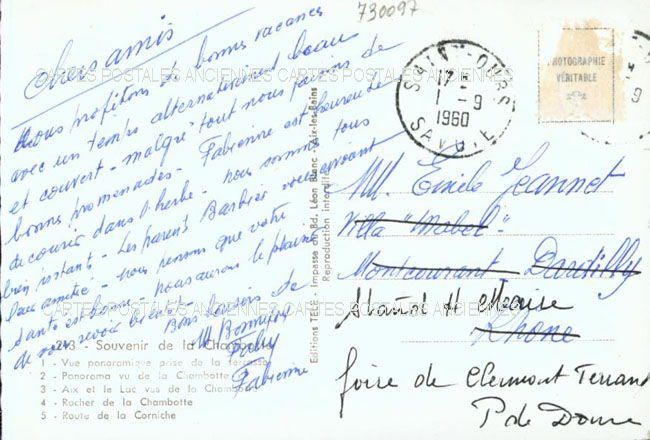 730097
chers amis
nous profitons de bonnes vacances
avec un temps alternativement beau
et couvert - malgré tout nous faisons de
bonnes promenades - Fabienne est heureuse
de courir dans l'herbe - nous sommes tous
bien portants - Les parents Barbier vous envoient
leur amitié - nous pensons que votre
santé est bonne nous aurons le plaisir
de vous revoir bientôt
Bons baisers de
Fabienne
CARTES POSTALES ANCIENNES CARTES POSTALES ANCIENNES CARTES POSTALES ANCIENNES
CARTES POSTALES ANCIENNES CARTES POSTALES ANCIENNES CARTES POSTALES ANCIENNES
213 - Souvenir de la Chambotte
1 - Vue panoramique prise de la terrasse
2 - Panorama vu de la Chambotte
3 - Aix et le Lac vus de la Chambotte
4 - Rocher de la Chambotte
5 - Route de la Corniche
Editions TELE - Impasse du Bd. Léon Blanc - Aix-les-Bains
Reproduction interdite
17
1 - 9
1960
SAVOIE
PHOTOGRAPHIE
VÉRITABLE
9
MM. Emile Jeannet
Villa "Mabel"
Montcourant Dardilly
Stand H
Rhône
foire de Clermont Ferrand
P. de Dome